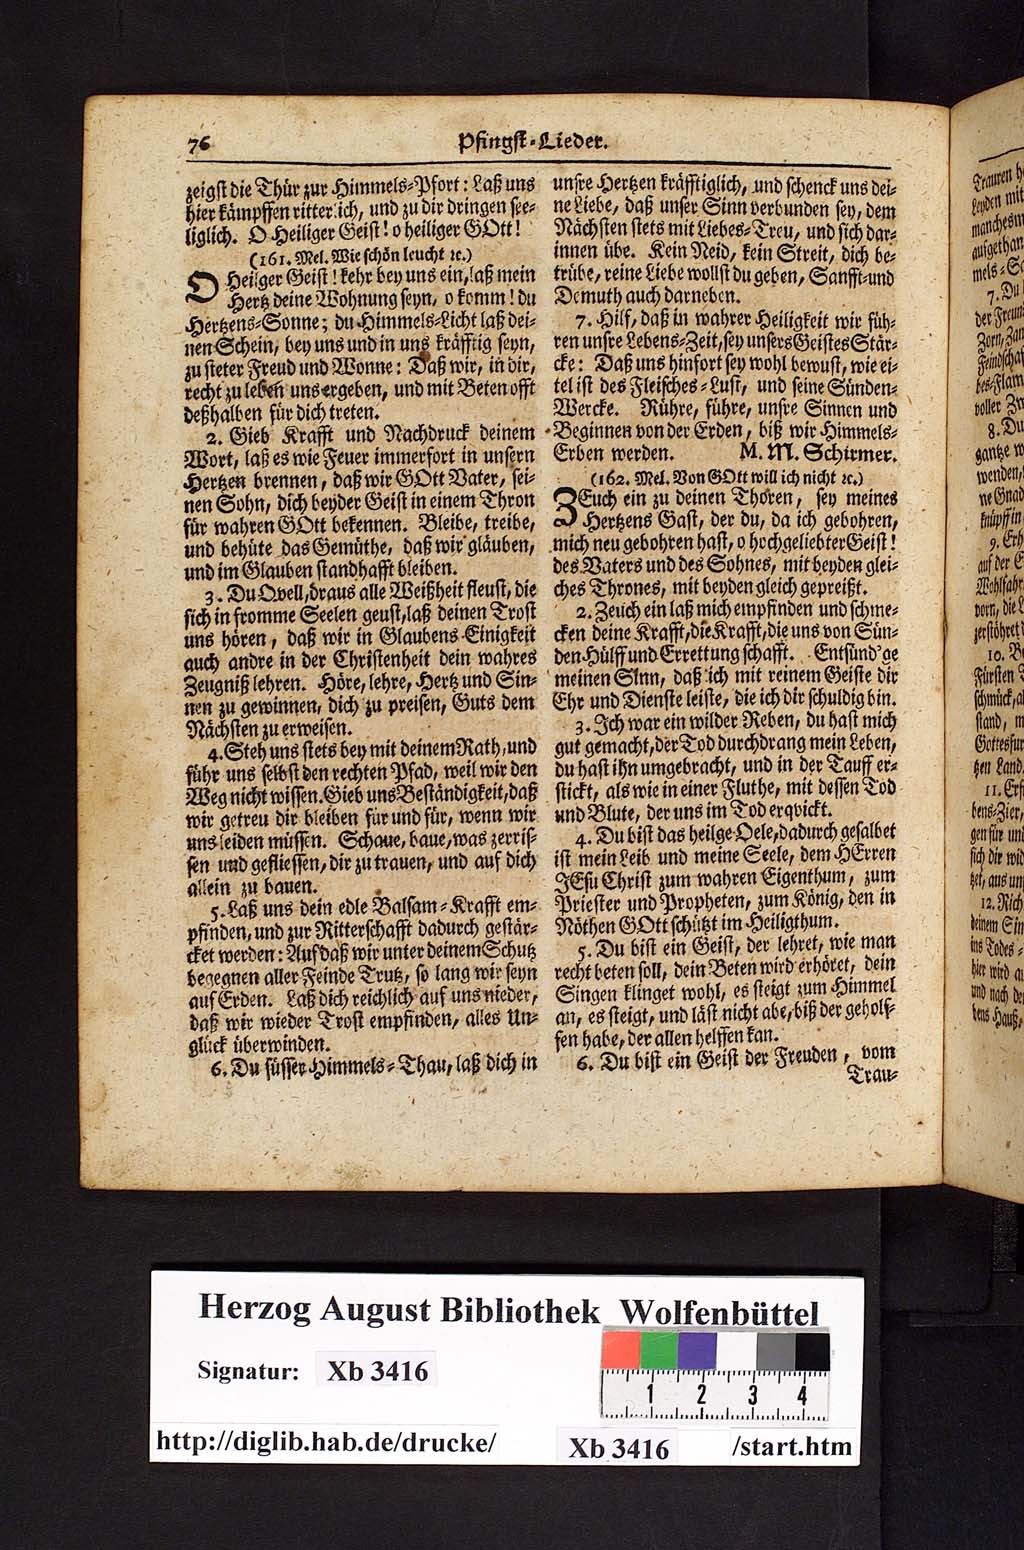 76 Pfingst-Lieder.
zeigst die Thür zur Himmels-Pfort: Laß uns
hier kämpffen ritterlich, und zu dir dringen see-
liglich. O Heiliger Geist! o heiliger GOtt!
(161. Mel. Wie schön leucht ꝛc.)
O Heilger Geist! kehr bey uns ein, laß mein
Hertz deine Wohnung seyn, o komm! du
Hertzens-Sonne; du Himmels-Licht laß dei-
nen Schein, bey uns und in uns kräfftig seyn,
zu steter Freud und Wonne: Daß wir, in dir,
recht zu leben uns ergeben, und mit Beten offt
deßhalben für dich treten.
2. Gieb Krafft und Nachdruck deinem
Wort, laß es wie Feuer immerfort in unsern
Hertzen brennen, daß wir GOtt Vater, sei-
nen Sohn, dich beyder Geist in einem Thron
für wahren GOtt bekennen. Bleibe, treibe,
und behüte das Gemüthe, daß wir gläuben,
und im Glauben standhafft bleiben.
3. Du Qvell, draus alle Weißheit fleust, die
sich in fromme Seelen geust, laß deinen Trost
uns hören, daß wir in Glaubens-Einigkeit
auch andre in der Christenheit dein wahres
Zeugniß lehren. Höre, lehre, Hertz und Sin-
nen zu gewinnen, dich zu preisen, Guts dem
Nächsten zu erweisen.
4. Steh uns stets bey mit deinem Rath, und
führ uns selbst den rechten Pfad, weil wir den
Weg nicht wissen. Gieb uns Beständigkeit, daß
wir getreu dir bleiben für und für, wenn wir
uns leiden müssen. Schaue, baue, was zerris-
sen und gefliessen, dir zu trauen, und auf dich
allein zu bauen.
5. Laß uns dein edle Balsam-Krafft em-
pfinden, und zur Ritterschafft dadurch gestär-
cket werden: Auf daß wir unter deinem Schutz
begegnen aller Feinde Trutz, so lang wir seyn
auf Erden. Laß dich reichlich auf uns nieder,
daß wir wieder Trost empfinden, alles Un-
glück überwinden.
6. Du süsser Himmels-Thau, laß dich in
unsre Hertzen kräfftiglich, und schenck uns dei-
ne Liebe, daß unser Sinn verbunden sey, dem
Nächsten stets mit Liebes-Treu, und sich dar-
innen übe. Kein Neid, kein Streit, dich be-
trübe, reine Liebe wollst du geben, Sanfft- und
Demuth auch darneben.
7. Hilf, daß in wahrer Heiligkeit wir füh-
ren unsre Lebens-Zeit, sey unsers Geistes Stär-
cke: Daß uns hinfort sey wohl bewust, wie ei-
tel ist des Fleisches-Lust, und seine Sünden-
Wercke. Rühre, führe, unsre Sinnen und
Beginnen von der Erden, biß wir Himmels-
Erben werden. M. M. Schirmer.
(162. Mel. Von GOtt will ich nicht ꝛc.)
ZEuch ein zu deinen Thoren, sey meines
Hertzens Gast, der du, da ich gebohren,
mich neu gebohren hast, o hochgeliebter Geist!
des Vaters und des Sohnes, mit beyden glei-
ches Thrones, mit beyden gleich gepreißt.
2. Zeuch ein laß mich empfinden und schme-
cken deine Krafft, die Krafft, die uns von Sün-
den Hülff und Errettung schafft. Entsünd'ge
meinen Sinn, daß ich mit reinem Geiste dir
Ehr und Dienste leiste, die ich dir schuldig bin.
3. Ich war ein wilder Reben, du hast mich
gut gemacht, der Tod durchdrang mein Leben,
du hast ihn umgebracht, und in der Tauff er-
stickt, als wie in einer Fluthe, mit dessen Tod
und Blute, der uns im Tod erqvickt.
4. Du bist das heilge Oele, dadurch gesalbet
ist mein Leib und meine Seele, dem HErren
JEsu Christ zum wahren Eigenthum, zum
Priester und Propheten, zum König, den in
Nöthen GOtt schützt im Heiligthum.
5. Du bist ein Geist, der lehret, wie man
recht beten soll, dein Beten wird erhöret, dein
Singen klinget wohl, es steigt zum Himmel
an, es steigt, und läst nicht abe, biß der geholf-
fen habe, der allen helffen kan.
6. Du bist ein Geist der Freuden, vom
Trau-
Herzog August Bibliothek Wolfenbüttel
Signatur: Xb 3416
1 2 3 4
http://diglib.hab.de/drucke/ Xb 3416 /start.htm